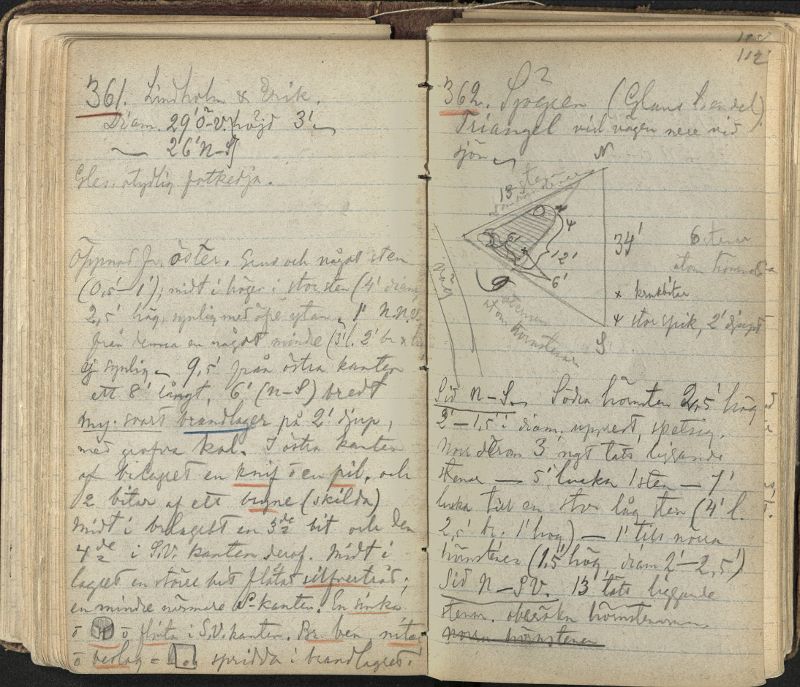 361. Lindholm & Erik.
Diam. 29' Ö-V. höjd 3'
26' N-S
Gles, otydlig fotkedja.
Öppnad fr. öster. Grus och något sten
(0,5'-1'); midt i högen 1 stor sten (4' diam,
2,5' hög, synlig med öfre ytan. 1' N.N.V.
från denna en något mindre (3' l. 2' br
ej synlig. 9,5' från östra kanten
ett 8' långt, 6' (N-S) bredt
my. svart brandlager på 2' djup,
med grofva kol. I östra kanten
af bålaget en knif o en pil, och
2 bitar af ett bryne (skilda)
Midt i brlagret en 3de bit och den
4de i S.V. kanten deraf. Midt i
lagret en större bit flätad silfvertråd;
en mindre närmare kanten. En sinka
o o flinta i S.V. kanten. Br. ben, nitar
o beslag = spridda i brandlagret.
112
362. Sjögren (Glans Hendel)
Triangel vid vägen nere vid
sjön
N
13 stenar
34'
6 stenar
utom hörnen
4
6'
12'
6'
väg
9 stenar
utom hörnstenar
x krukbitar
stor spik, 2' djupt
S
Sid N-S. Södra hörnsten 2,5' hög
2'-1,5' i diam. upprest, spetsig.
Norr derom 3 ngt tätt liggande
stenar — 5' lucka 1 sten — 7'
lucka till en stor låg sten (4' l.
2,5' br. 1' hög) — 1' till norra
hörnstenen (1,5' hög, diam 2'-2,5')
Sid N-SV. 13 tätt liggande
stenar. oberäkn hörnstenarna
norra hörnstenen